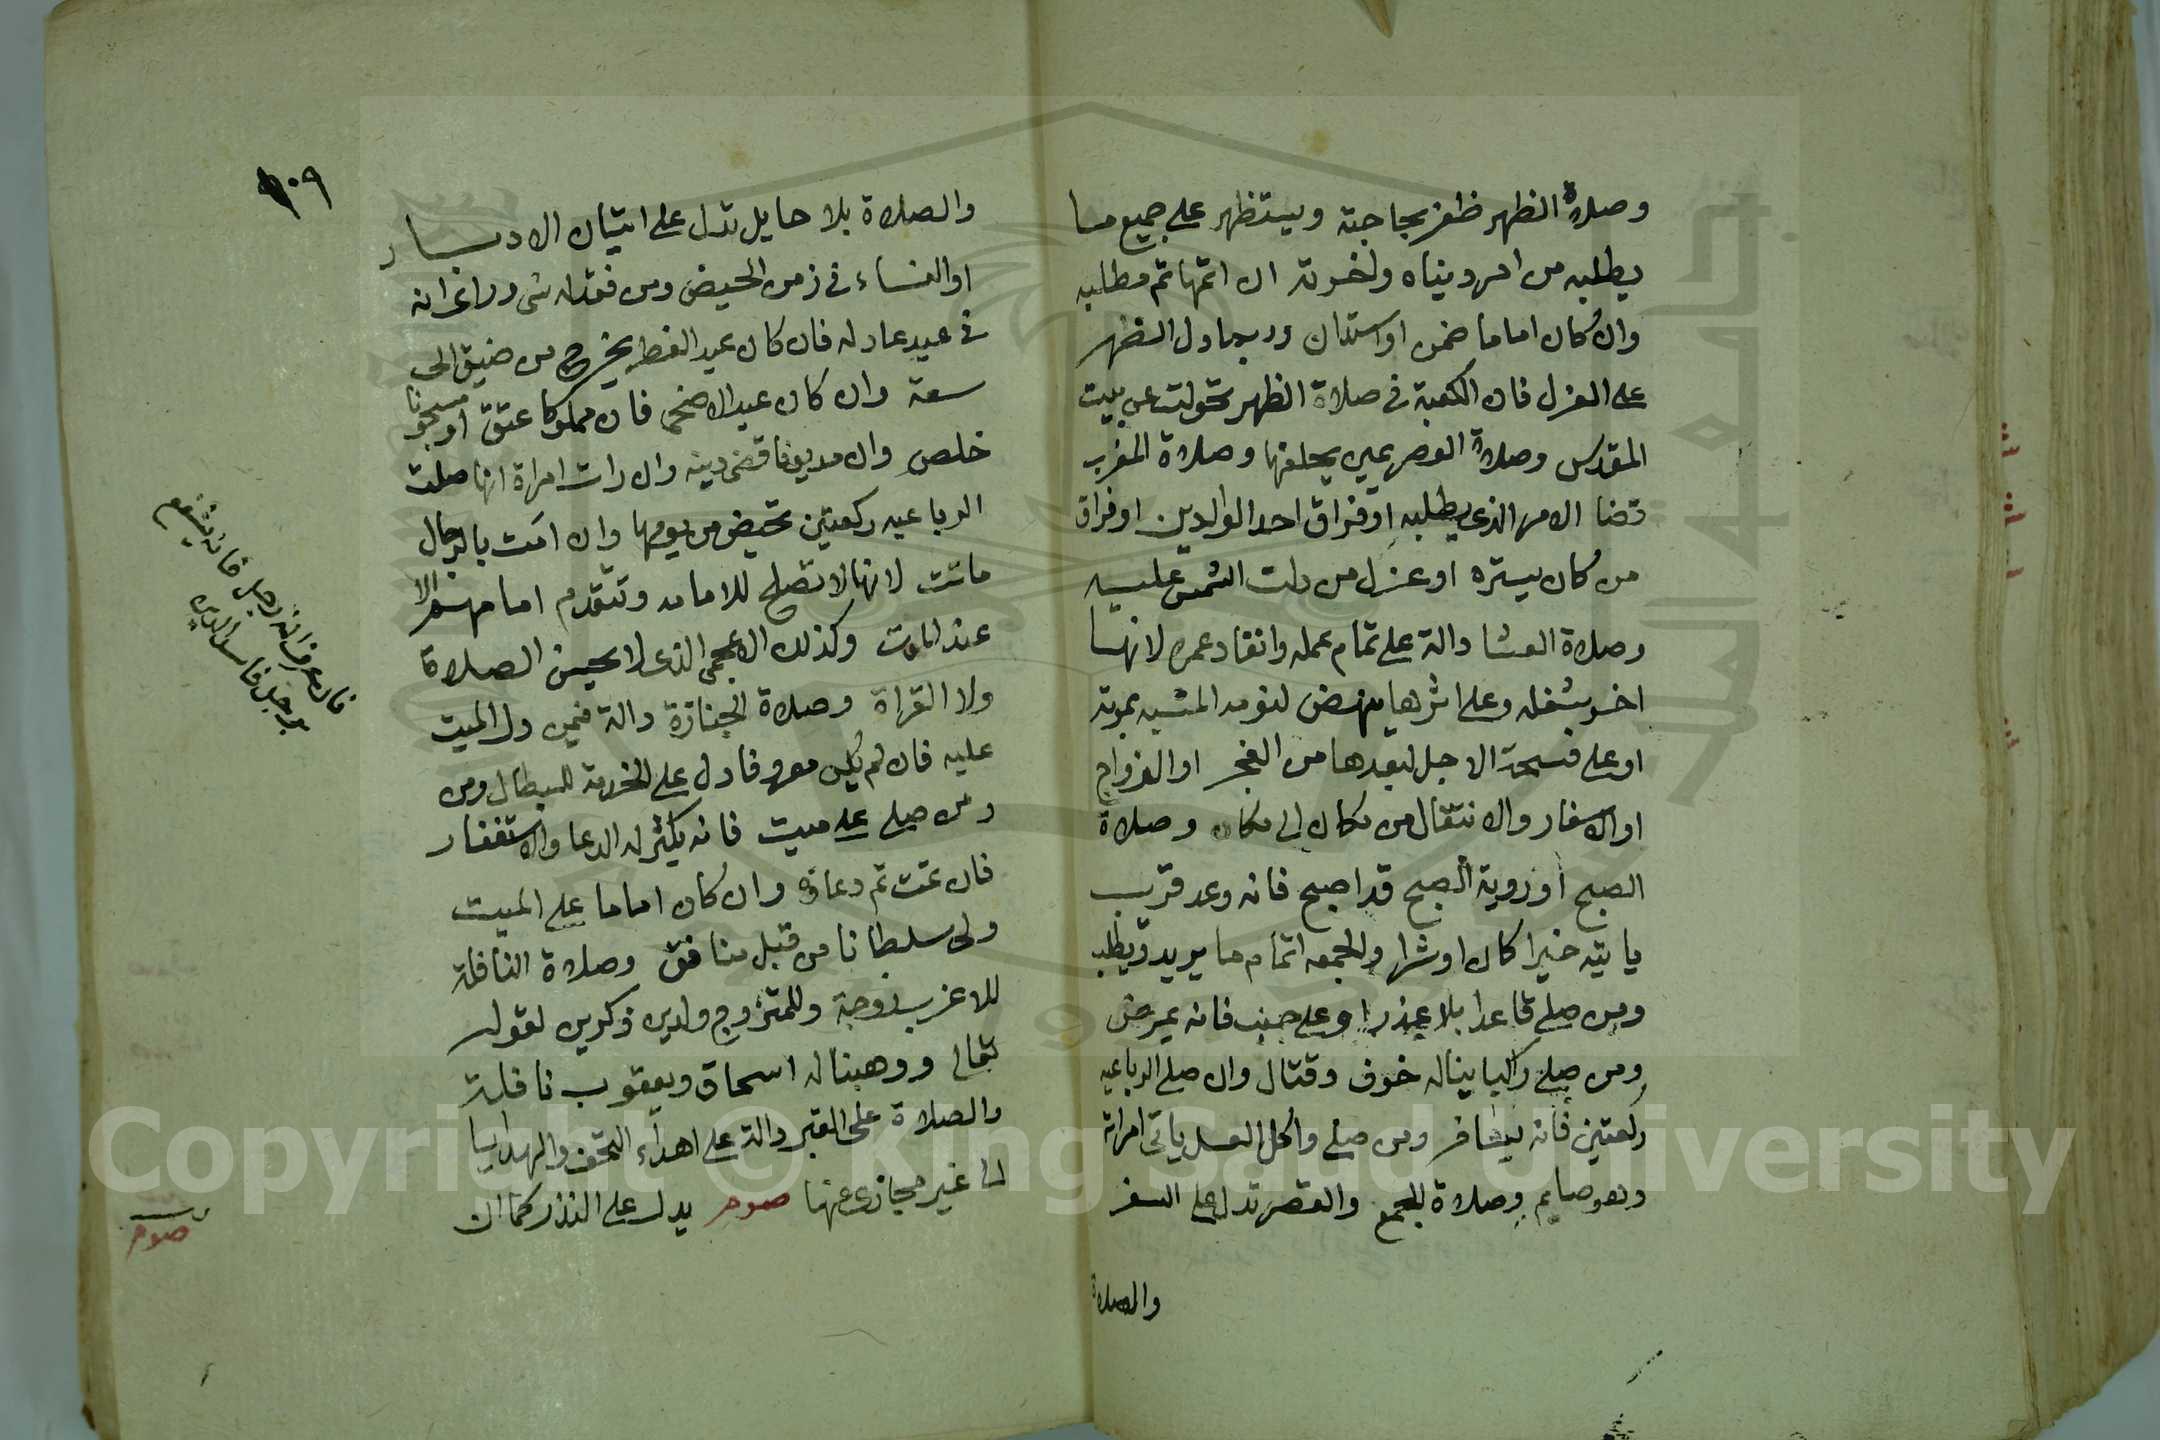 وصلاة الظهر ظفر بحاجته ويستظهر على جميع ما
يطلبه من امر دنياه واخرته ان اتمها تم مطلبه
وان كان اماما ضمن او استدان وربما دل الظهر
على العزل فان الكعبة في صلاة الظهر تحولت عن بيت
المقدس وصلاة العصر يمين يحلفها وصلاة المغرب
قضا الامر الذي يطلبه او فراق احد الوالدين او فراق
من كان يستره او عزل من دلت الشمس عليه
وصلاة العشا دالة على تمام عمله وانفاد عمره لانها
اخر شغله وعلى اثرها ينهض لنومه المشبه بموته
او على فسحة الاجل لبعدها من الفجر او الزواج
او الاسفار والانتقال من مكان الى مكان وصلاة
الصبح او روية الصبح قد اصبح فانه وعد قريب
ياتيه خيرا كان او شرا والجمعه اتمام ما يريد ويطلب
ومن صلى قاعدا بلا عذر او على جنب فانه يمرض
ومن صلى راكبا يناله خوف وقتال وان صلى الرباعيه
ركعتين فانه يسافر ومن صلى واكل العسل ياتي امراته
وهو صايم وصلاة الجمع والقصر تدل على السفر
والصلاة
١٠٩
والصلاة بلا حايل تدل على اتيان الادبار
او النساء في زمن الحيض ومن فقد له شي وراى انه
في عيد عاد له فان كان عيد الفطر يخرج من ضيق الى
سعة وان كان عيد الاضحى فان مملوكا عتق او مسجونا
خلص وان مديونا قضى دينه وان رات امراة انها صلت
الرباعيه ركعتين تحيض من يومها وان امت بالرجال
ماتت لانها لا تصلح للامامه وتتقدم امامهم الا
عند الموت وكذلك الاعجمي الذي لا يحسن الصلاة
ولا القراة وصلاة الجنازة دالة فيمن دل الميت
عليه فان لم يكن معروفا دل على الخدمة للبطال ومن
ومن صلى على ميت فانه يكثر له الدعا والاستغفار
فان تمت تم دعاؤه وان كان اماما على الميت
ولي سلطانا من قبل منافق وصلاة النافلة
للاعزب زوجة وللمتزوج ولدين ذكرين لقوله
تعالى ووهبنا له اسحاق ويعقوب نافلة
والصلاة على القبر دالة على اهداء التحف والهدايا
الى غير مجازى عنها صوم يدل على النذر كما ان
فان عرف انه رجل فانه يشفع
صوم